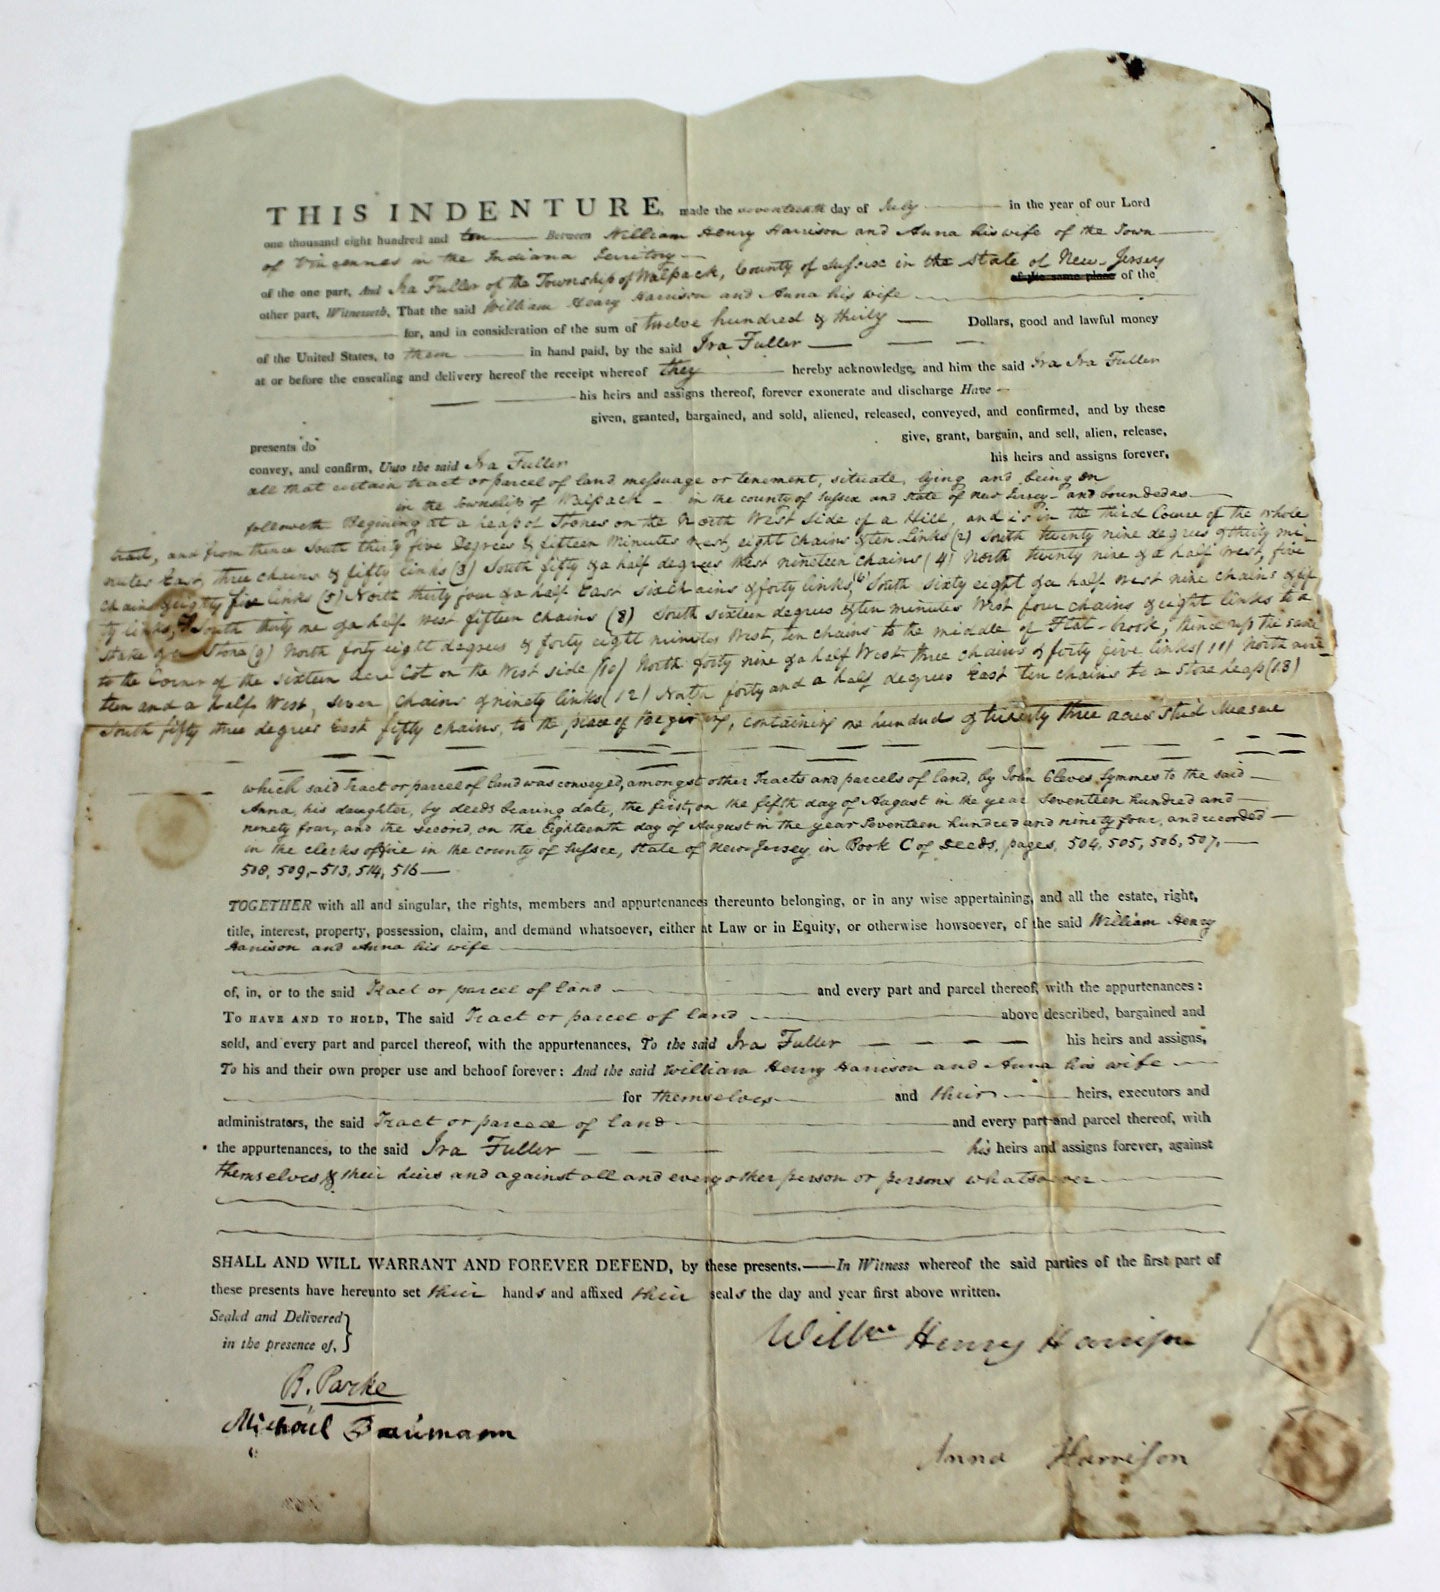 THIS INDENTURE, made the seventeenth day of July in the year of our Lord
one thousand eight hundred and ten Between William Henry Harrison and Anna his wife of the Town
of Vincennes in the Indiana Territory
of the one part, And Ira Fuller of the Township of Walpack, County of Sussex in the State of New-Jersey of the same place of the
other part, Witnesseth, That the said William Henry Harrison and Anna his wife
for, and in consideration of the sum of twelve hundred & thirty Dollars, good and lawful money
of the United States, to them in hand paid, by the said Ira Fuller
at or before the ensealing and delivery hereof the receipt whereof they hereby acknowledge, and him the said Ira Ira Fuller
his heirs and assigns thereof, forever exonerate and discharge Have
given, granted, bargained, and sold, aliened, released, conveyed, and confirmed, and by these
presents do give, grant, bargain, and sell, alien, release,
convey, and confirm, Unto the said Ira Fuller his heirs and assigns forever,
all that certain tract or parcel of land messuage or tenement, situate, lying and being in
in the Township of Walpack in the county of Sussex and State of New Jersey and bounded as
followeth Begining at a heap of Stones on the North West Side of a Hill, and is in the third Cource of the whole
tract, and from thence South thirty five Degrees & fifteen Minutes West, eight chains & ten Links (2) South twenty nine degrees & thirty mi-
nutes East, three chains & fifty links (3) South fifty & a half degrees West nineteen chains (4) North twenty nine & a half West, five
chains & eighty five links (5) North thirty four & a half East six chains & forty links (6) South sixty eight & a half West nine chains & fif
ty links, (7) South thirty one & a half West fifteen chains (8) South sixteen degrees & ten minutes West four chains & eight links to a
stake & Stone (9) North forty eight degrees & forty eight minutes West, ten chains to the middle of Flat-brook, thence up the same
to the Corner of the sixteen acre Lot on the West side (10) North forty nine & a half West three chains & forty five links (11) North nine-
teen and a half West, seven chains & ninety links (12) North forty and a half degrees East ten chains to a Stone heap (13)
South fifty three degrees East fifty chains, to the place of Begining, containing one hundred & twenty three acres Strict Measure
which said Tract or parcel of land was conveyed, amongst other Tracts and parcels of land, by John Cleves Symmes to the said
Anna, his daughter, by deeds bearing date, the first, on the fifth day of August in the year Seventeen hundred and
ninety four, and the second, on the Eighteenth day of August in the year Seventeen hundred and ninety four, and recorded
in the clerks office in the county of Sussex, State of New Jersey, in Book C of Deeds, pages, 504, 505, 506, 507,
508, 509,-513, 514, 516
TOGETHER with all and singular, the rights, members and appurtenances thereunto belonging, or in any wise appertaining, and all the estate, right,
title, interest, property, possession, claim, and demand whatsoever, either at Law or in Equity, or otherwise howsoever, of the said William Henry
Harrison and Anna his wife
of, in, or to the said Tract or parcel of land and every part and parcel thereof, with the appurtenances:
TO HAVE AND TO HOLD, The said Tract or parcel of land above described, bargained and
sold, and every part and parcel thereof, with the appurtenances, To the said Ira Fuller his heirs and assigns,
To his and their own proper use and behoof forever: And the said William Henry Harrison and Anna his wife
for themselves and their heirs, executors and
administrators, the said Tract or parcel of land and every part and parcel thereof, with
the appurtenances, to the said Ira Fuller his heirs and assigns forever, against
themselves, & their heirs and against all and every other person or persons whatsoever
SHALL AND WILL WARRANT AND FOREVER DEFEND, by these presents.—In Witness whereof the said parties of the first part of
these presents have hereunto set their hands and affixed their seals the day and year first above written.
Sealed and Delivered
in the presence of,
Willm Henry Harrison
B. Parke
Michael Baumann
Anna Harrison